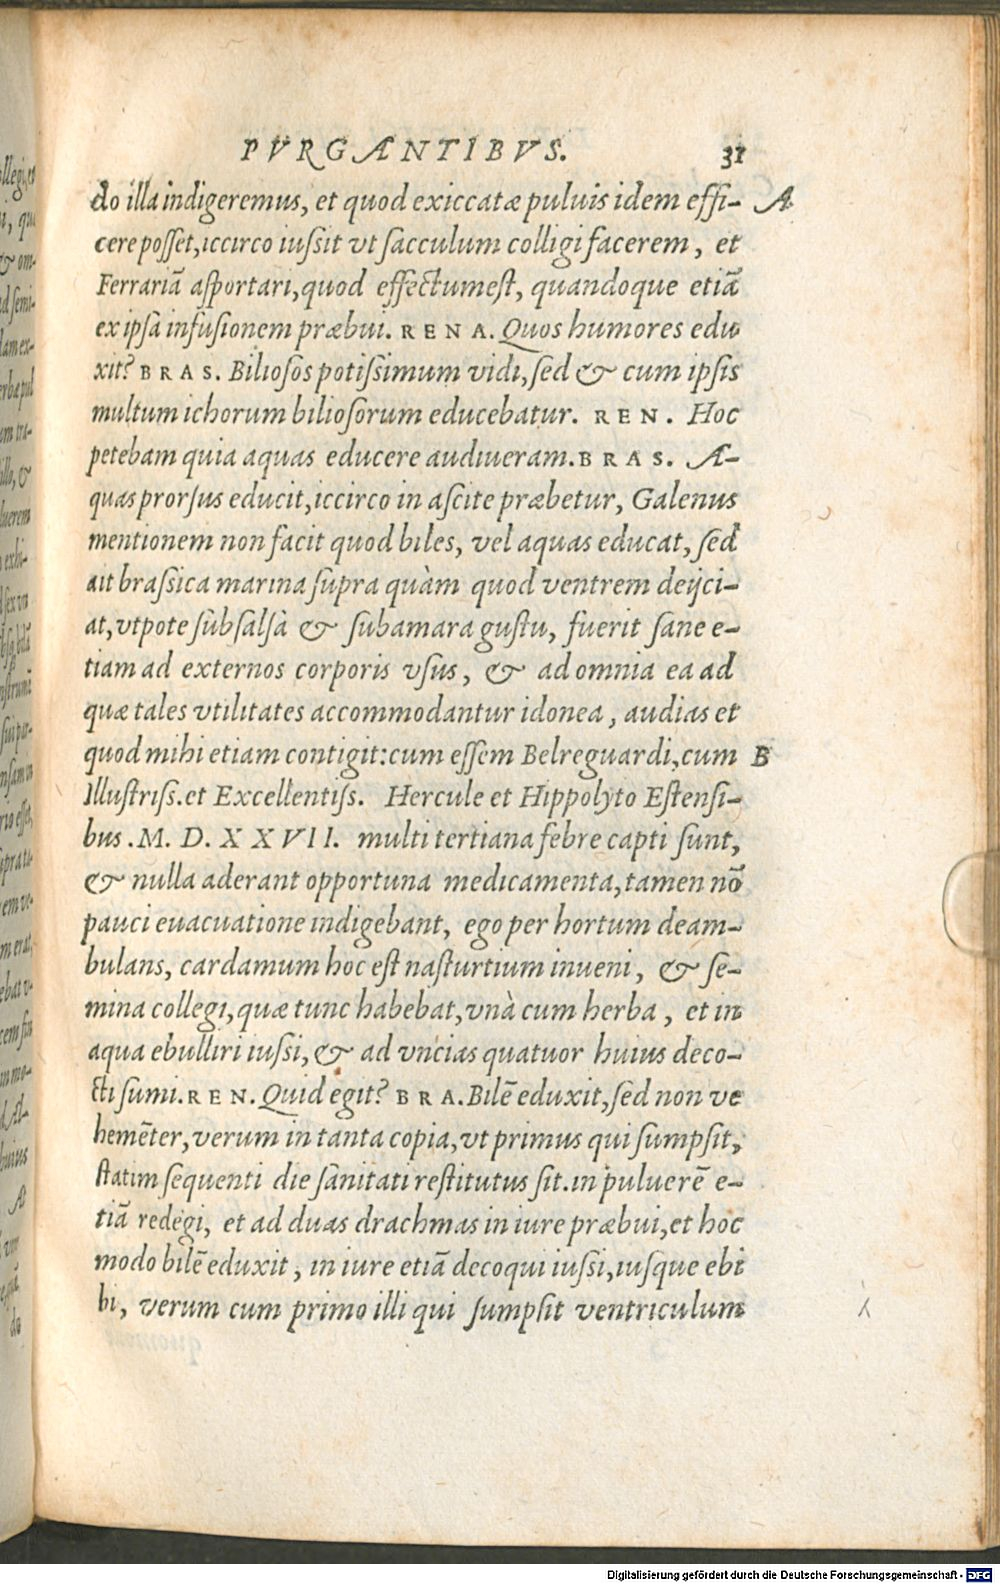 PVRGANTIBVS. 31
do illa indigeremus, et quod exiccatæ puluis idem effi- A
cere posset, iccirco iussit vt sacculum colligi facerem, et
Ferrariā asportari, quod effectumest, quandoque etiā
ex ipsa infusionem præbui. RENA. Quos humores edu
xit? BRAS. Biliosos potissimum vidi, sed & cum ipsis
multum ichorum biliosorum educebatur. REN. Hoc
petebam quia aquas educere audiueram. BRAS. A-
quas prorsus educit, iccirco in ascite præbetur, Galenus
mentionem non facit quod biles, vel aquas educat, sed
ait brassica marina supra quàm quod ventrem deijci-
at, vtpote subsalsa & subamara gustu, fuerit sane e-
tiam ad externos corporis vsus, & ad omnia ea ad
quæ tales vtilitates accommodantur idonea, audias et
quod mihi etiam contigit: cum essem Belreguardi, cum B
Illustriss. et Excellentiss. Hercule et Hippolyto Estensi-
bus. M. D. XXVII. multi tertiana febre capti sunt,
& nulla aderant opportuna medicamenta, tamen nō
pauci euacuatione indigebant, ego per hortum deam-
bulans, cardamum hoc est nasturtium inueni, & se-
mina collegi, quæ tunc habebat, vnà cum herba, et in
aqua ebulliri iussi, & ad vncias quatuor huius deco-
cti sumi. REN. Quid egit? BRA. Bilē eduxit, sed non ve
hemēter, verum in tanta copia, vt primus qui sumpsit,
statim sequenti die sanitati restitutus sit. in puluerē e-
tiā redegi, et ad duas drachmas in iure præbui, et hoc
modo bilē eduxit, in iure etiā decoqui iussi, iusque ebi
bi, verum cum primo illi qui sumpsit ventriculum
Digitalisierung gefördert durch die Deutsche Forschungsgemeinschaft - DFG